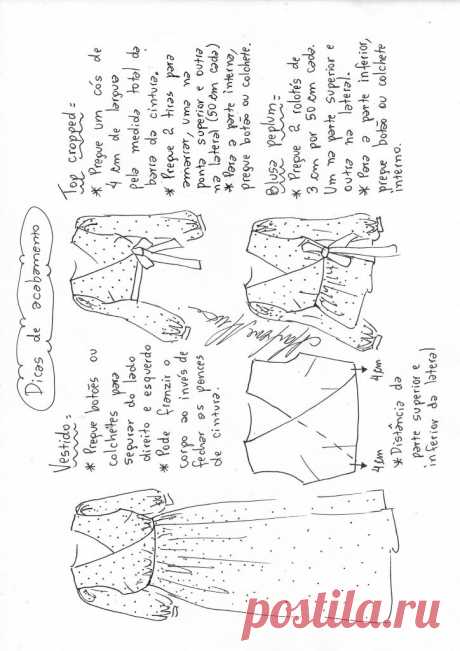 Dicas de acabamento
Vestido:
* Pregue botões ou
colchetes para
segurar do lado
direito e esquerdo
* Pode franzir o
corpo ao invés de
fechar as pences
de cintura.
Top cropped:
* Pregue um cós de
4 cm de largura
pela medida total da
barra da cintura.
* Pregue 2 tiras para
amarrar, uma na
ponta superior e outra
na lateral (50 cm cada)
* Para a parte interna,
pregue botão ou colchete.
Blusa peplum:
* Pregue 2 rolotês de
3 cm por 50 cm cada.
Um na parte superior e
outra na lateral.
* Para a parte inferior,
pregue botão ou colchete
interno.
4cm
4cm
* Distância da
parte superior e
inferior da lateral
postila.ru